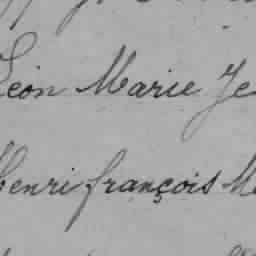 Léon Marie Je
Henri françois M